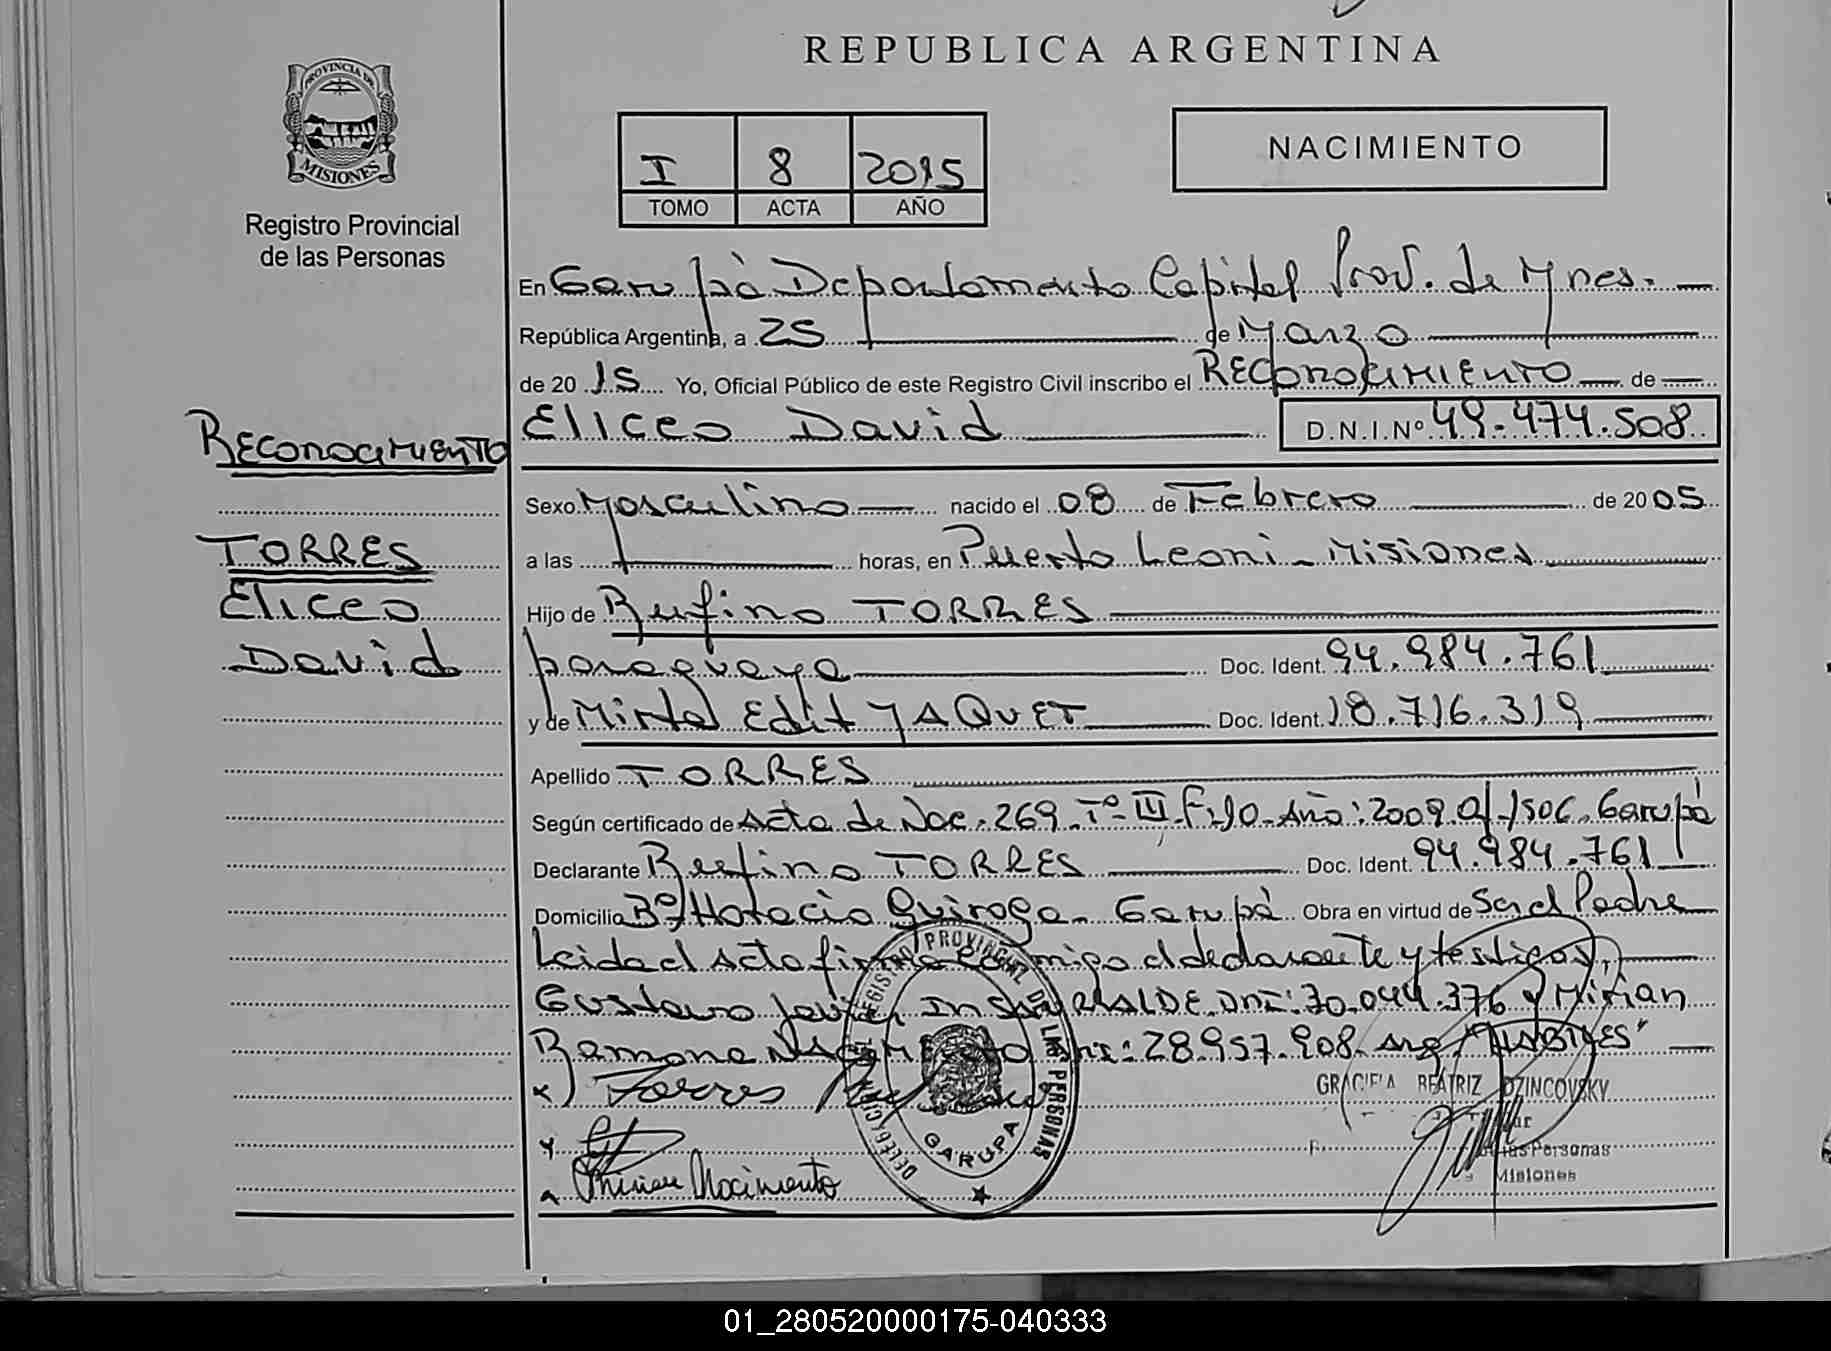 REPUBLICA ARGENTINA
PROVINCIA DE
MISIONES
Registro Provincial
de las Personas
I 8 2015
TOMO ACTA AÑO
NACIMIENTO
En Garupà Departamento Capital Prov. de Mnes.
República Argentina, a 25 de Marzo
de 20 15 Yo, Oficial Público de este Registro Civil inscribo el RECONOCIMIENTO de
Eliceo David D.N.I.Nº 49.474.508
RECONOCIMIENTO
TORRES
Eliceo
David
Sexo Masculino nacido el 08 de Febrero de 20 05
a las horas, en Puerto Leoni - Misiones
Hijo de Rufino TORRES
paraguaya Doc. Ident. 94.984.761
y de Mirta Edit YAQUET Doc. Ident. 18.716.319
Apellido TORRES
Según certificado de Acta de Nac. 269 Tº III Fº 90 Año: 2009 Of. 1506. Garupà
Declarante Rufino TORRES Doc. Ident. 94.984.761
Domicilio Bº Horacio Quiroga - Garupà Obra en virtud de Ser el Padre
Leida el Acta firma conmigo el declarante y testigos,
Gustavo Javier INSAURRALDE DNI: 30.044.376 y Mirian
Ramona NACIMIENTO DNI: 28.957.908. Arg.
Torres
Mirian Nacimiento
DELEGACION DEL REGISTRO PROVINCIAL DE LAS PERSONAS
GARUPA
GRACIELA BEATRIZ DZINCOVSKY
las Personas
Misiones
01_280520000175-040333